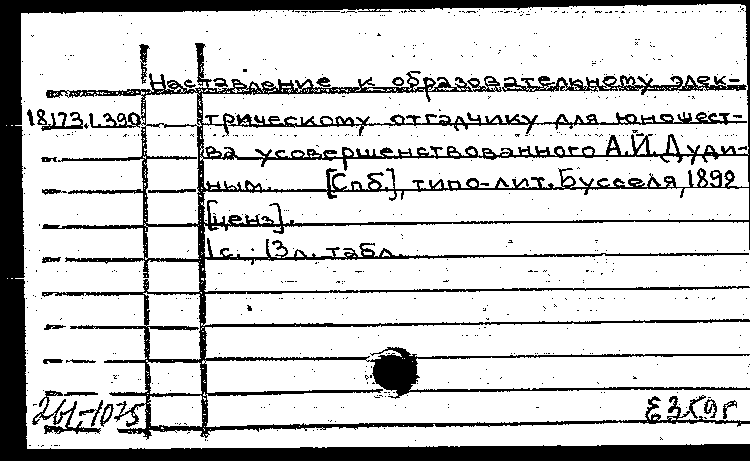 Наставление к образовательному элек-
18.173.1.390 трическому отгадчику для юношест-
ва усовершенствованного А.Й. Дуди-
ным. [Спб.], типо-лит. Бусселя, 1892
[ценз].
1 с.; 13 л. табл.
261,-1075